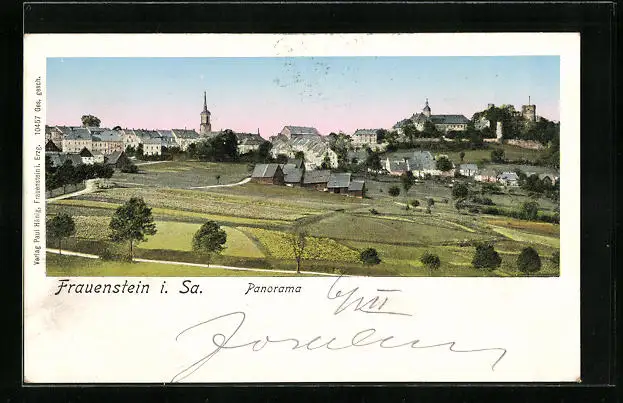 Verlag Paul Hönig, Frauenstein i. Erzg. 10457 Ges. gesch.
Frauenstein i. Sa. Panorama